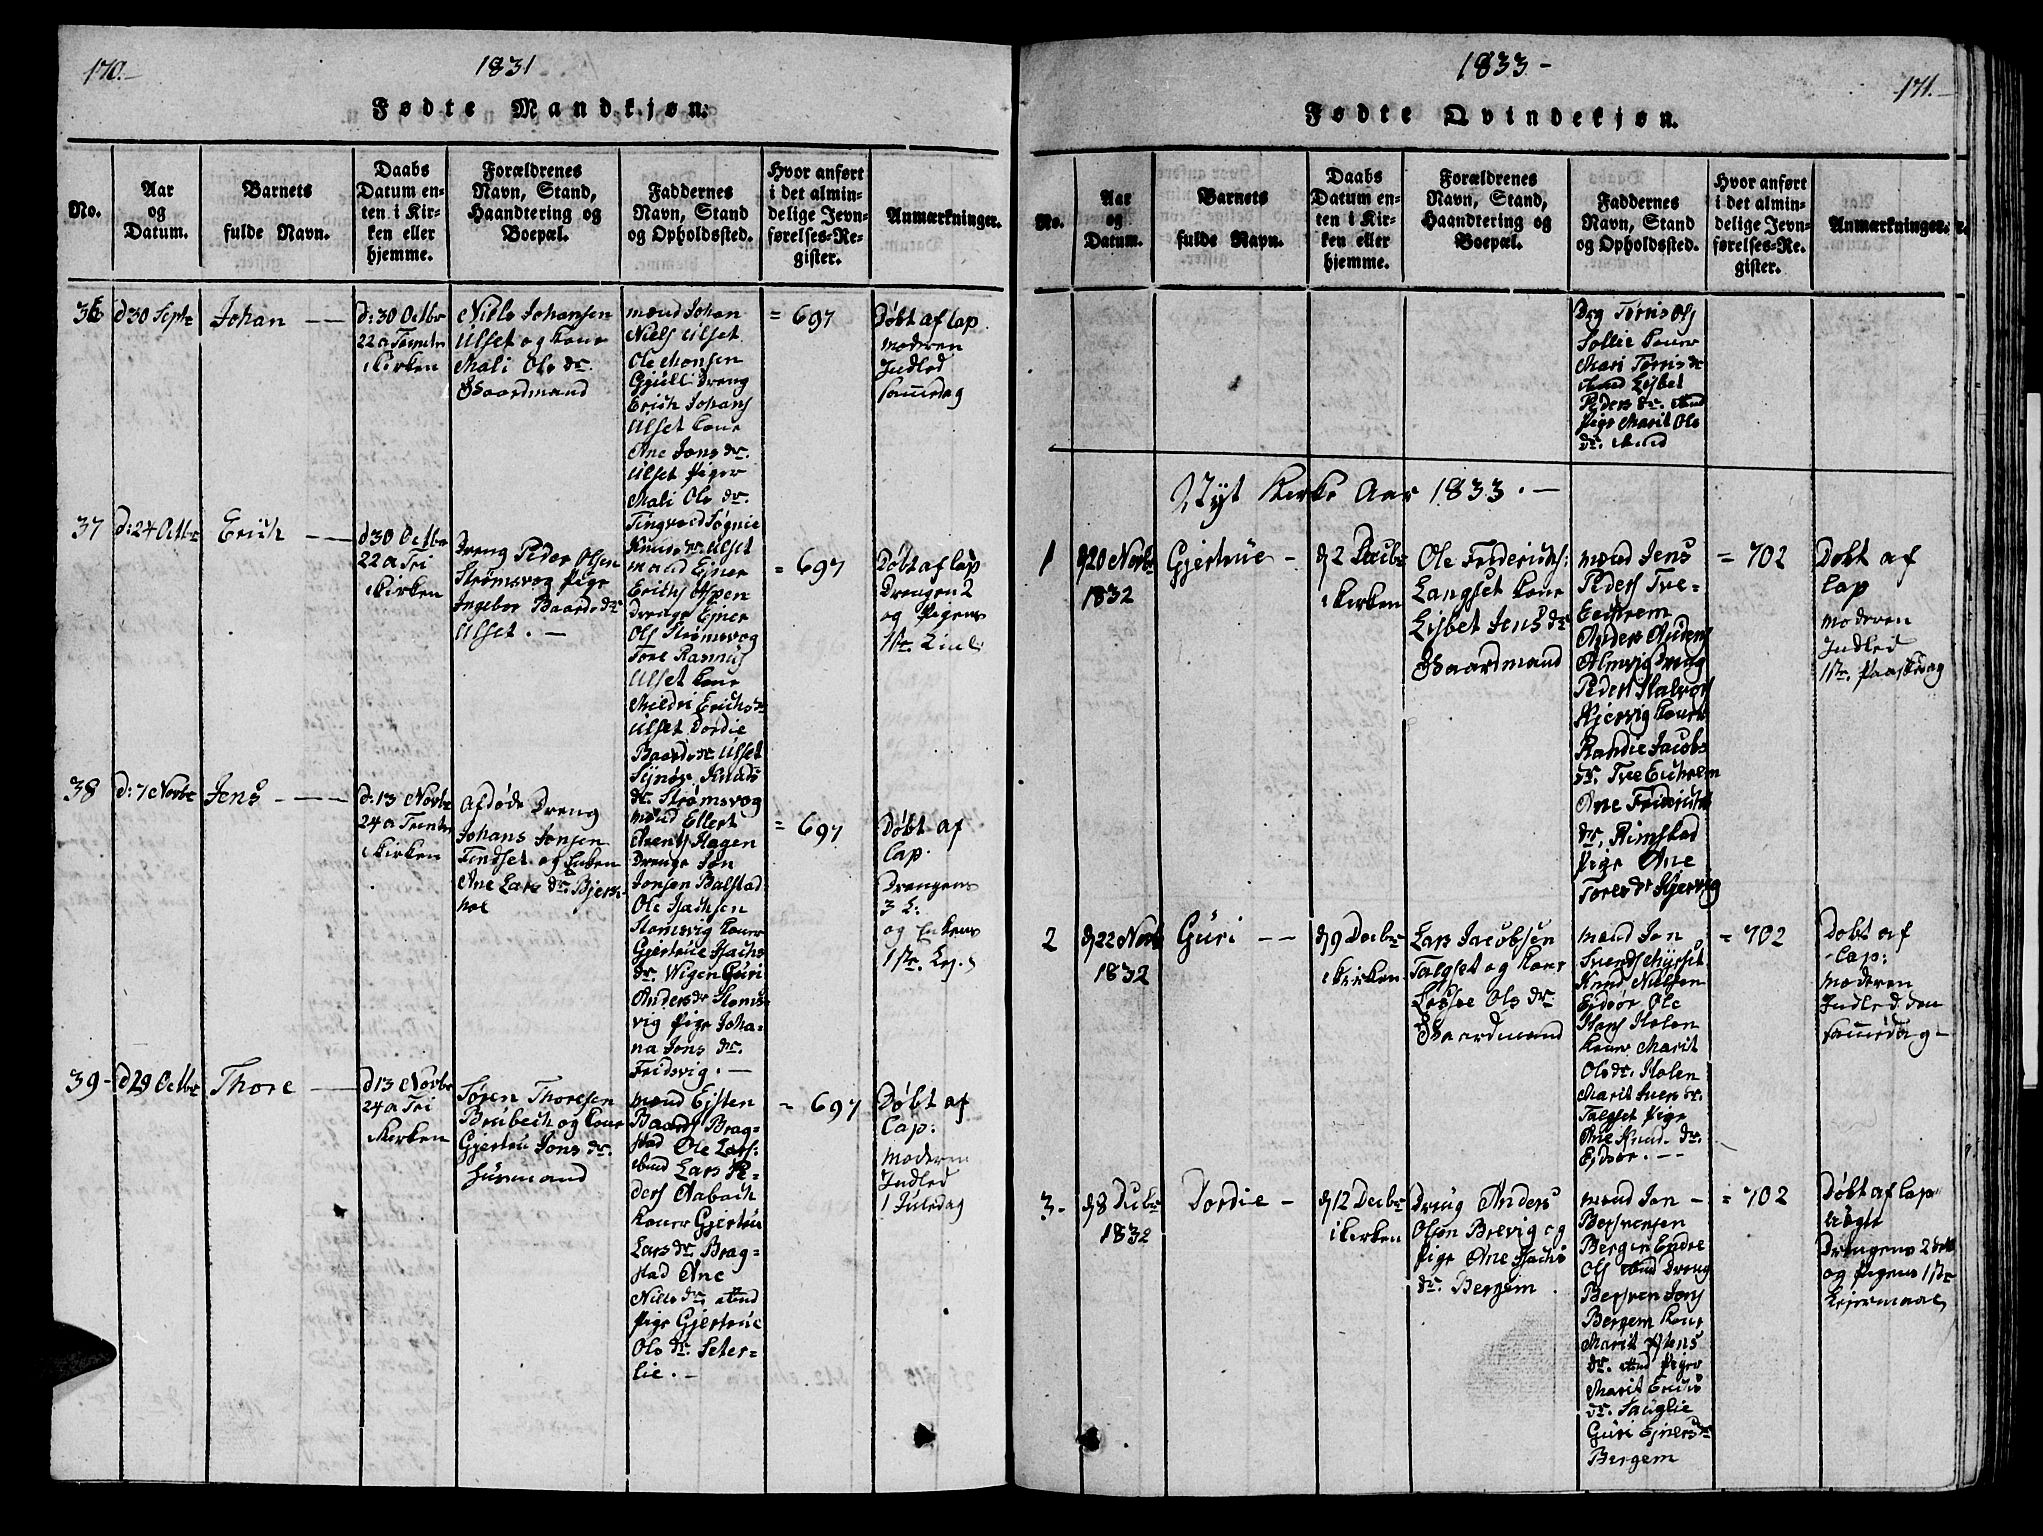 170.
1831
Fødte Mandkjøn.
No.
Aar
og
Datum.
Barnets
fulde Navn.
Daabs
Datum en-
ten i Kir-
ken eller
hjemme.
Forældrenes
Navn, Stand,
Haandtering og
Boepæl.
Faddernes
Navn, Stand
og Opholdssted.
Hvor anført
i det almin-
delige Jevn-
førelses-Re-
gister.
Anmærkninger.
36
d 30 Septr
Johan
d: 30 Octbr
22 a Trinitn
i Kirken
Niels Johansen
Ulset og Kone
Mali Ols dr.
Gaardmand
mænd Johan
Niels Ulset
Ole Monsen
Gjull Dreng
Erich Johans
Ulset Kone
Ane Jons dr.
Ulset Piger
Mali Ols dr.
Tingvold Søgnie
Knuds dr Ulset
= 697
Døbt af Cap
moderen
Indled
samedag
37
d: 24 Octbr
Erich
d 30 Octbr
22 a Tri
i Kirken
Dreng Peder Olsen
Strømsvog Pige
Ingebor Baards dr
Ulset.
mænd Ejner
Erichs Aspen
Drenge Ejner
Ols Strømsvog
Tore Rasmus
Ulset Kone
Mildri Erichs dr
Ulset Dordie
Baards dr Ulset
Sijnør Knuds
dr. Strømsvog
= 697
Døbt af Cap
Drengen 2
og Pigens
1ste
38
d: 7 Novbr
Jens
d: 13 Novbr
24 a Trinitn
i Kirken
Afdøde Dreng
Johans Jonsen
Tindset og Enken
Ane Lars dr. Bjersk-
hoe
mænd Ellert
Arents Hagen
Drenge Jøn
Jonsen Balstad
Ole Isachsen
Stomsvig Koner
Gjertrue Isachs
dr. Wigen Guri
Anders dr Stoms-
vig Pige Joha-
na Jons dr.
Fridsvig.
= 697
Døbt af
Cap.
Drengens
3 L:
og Enkens
1ste Lej.
39
d 29 Octbr
Thore
d 13 Novbr
24 a Tri
i Kirken
Søren Thoresen
Brubech og Kone
Gjertru Jons dr.
Huusmand
mænd Ejsten
Baards Brag-
stad Ole Lars:
ibmd Lars Pe-
ders Aabach
Koner Gjertru
Lars dr. Brag-
stad Ane
Niels dr. ibmd
Pige Gjertrue
Ols dr. Seter-
lie.
= 697
Døbt af
Cap:
moderen
Indled
1 Juledag
1833
171.
Fødte Qvindekjøn.
No.
Aar
og
Datum.
Barnets
fulde Navn.
Daabs
Datum en-
ten i Kir-
ken eller
hjemme.
Forældrenes
Navn, Stand,
Haandtering og
Boepæl.
Faddernes
Navn, Stand
og Opholdssted.
Hvor anført
i det almin-
delige Jevn-
førelses-Re-
gister.
Anmærkninger.
Drg Tørris Ols
Sollie Koner
Mari Tørris dr
ibmd Lisbet
Peders dr. ibmd
Pige Marit Ols
dr. ibmd
Nyt Kirke Aar 1833.
1
d 20 Novbr
1832
Gjertrue
d 2 Decbr
i Kirken
Ole Friderichs:
Langset Kone
Lisbet Jens dr
Gaardmand
mænd Jens
Peders Tve-
Eechrem
Anders Anders
Almvig Dreng
Peders Halvors
Kjervig Koner
Randie Jacobs
dr. Tve Euchrem
Ane Friderichs
dr. Rimstad
Pige Ane
Tores dr Skjervig
= 702
Døbt af
Cap
moderen
Indled
1ste Paaskedag
2
d 22 Novb
1832
Guri
d 9 Decbr
i Kirken
Lars Jacobsen
Talgset og Kone
Ols dr
Gaardmand
mænd Jon
Svends
Knud Nielsen
Ejdsør Ole
Hans Holen
Koner Marit
Ols dr. Holen
Marit Ivers dr.
Talgset Pige
Ane Knud. dr.
Ejdsør.
= 702
Døbt af
Cap:
moderen
Indled: den
samedag
3
d 8 Decbr
1832
Dordie
d 12 Decbr
i Kirken
Dreng Anders
Olsøn Brevig og
Pige Ane Isachs
dr. Bergem
mænd Jon
Bersvensen
Bergem Endre
Ols ibmd Dreng
Bersven Jons
Bergem Kone
Marit
dr. ibmd Piger
Marit Erichs
dr. Sauglie
Guri Ejners dr
Bergem
= 702
Døbt af Cap
Drengens 2det
og Pigens 1ste
Lejermaal